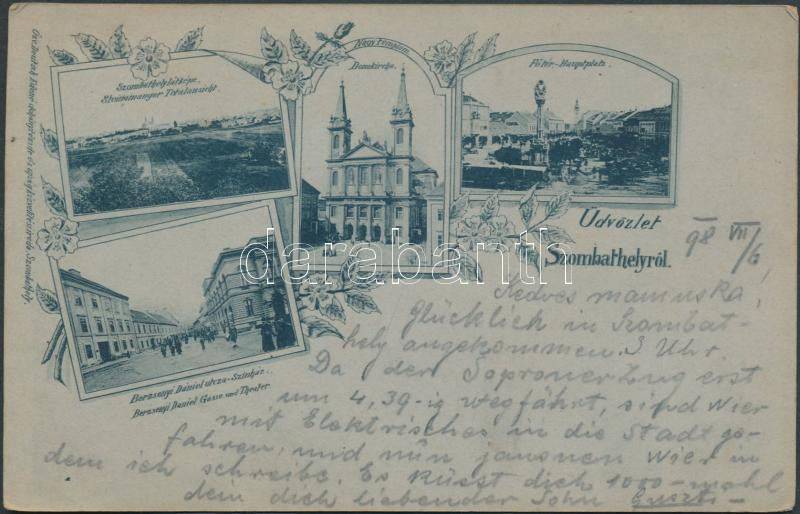 Szombathely látképe.
Steinamanger Totalansicht.
Nagy templom
Domkirche.
Főtér-Hauptplatz.
Berzsenyi Dániel utcza-Színház.
Berzsenyi Daniel Gasse und Theater.
Üdvözlet
Szombathelyről.
98 VII/6
Kedves mamuska,
Glücklich in Szombat-
hely angekommen 3 Uhr.
Da der Soproner Zug erst
um 4,39-ig wegfährt, sind wier
mit Elektrisches in die Stadt ge-
fahren, und nun jausnen wier in
dem ich schreibe. Es küsst dich 1000-mahl
dein dich liebender Sohn Guszti-
darabanth